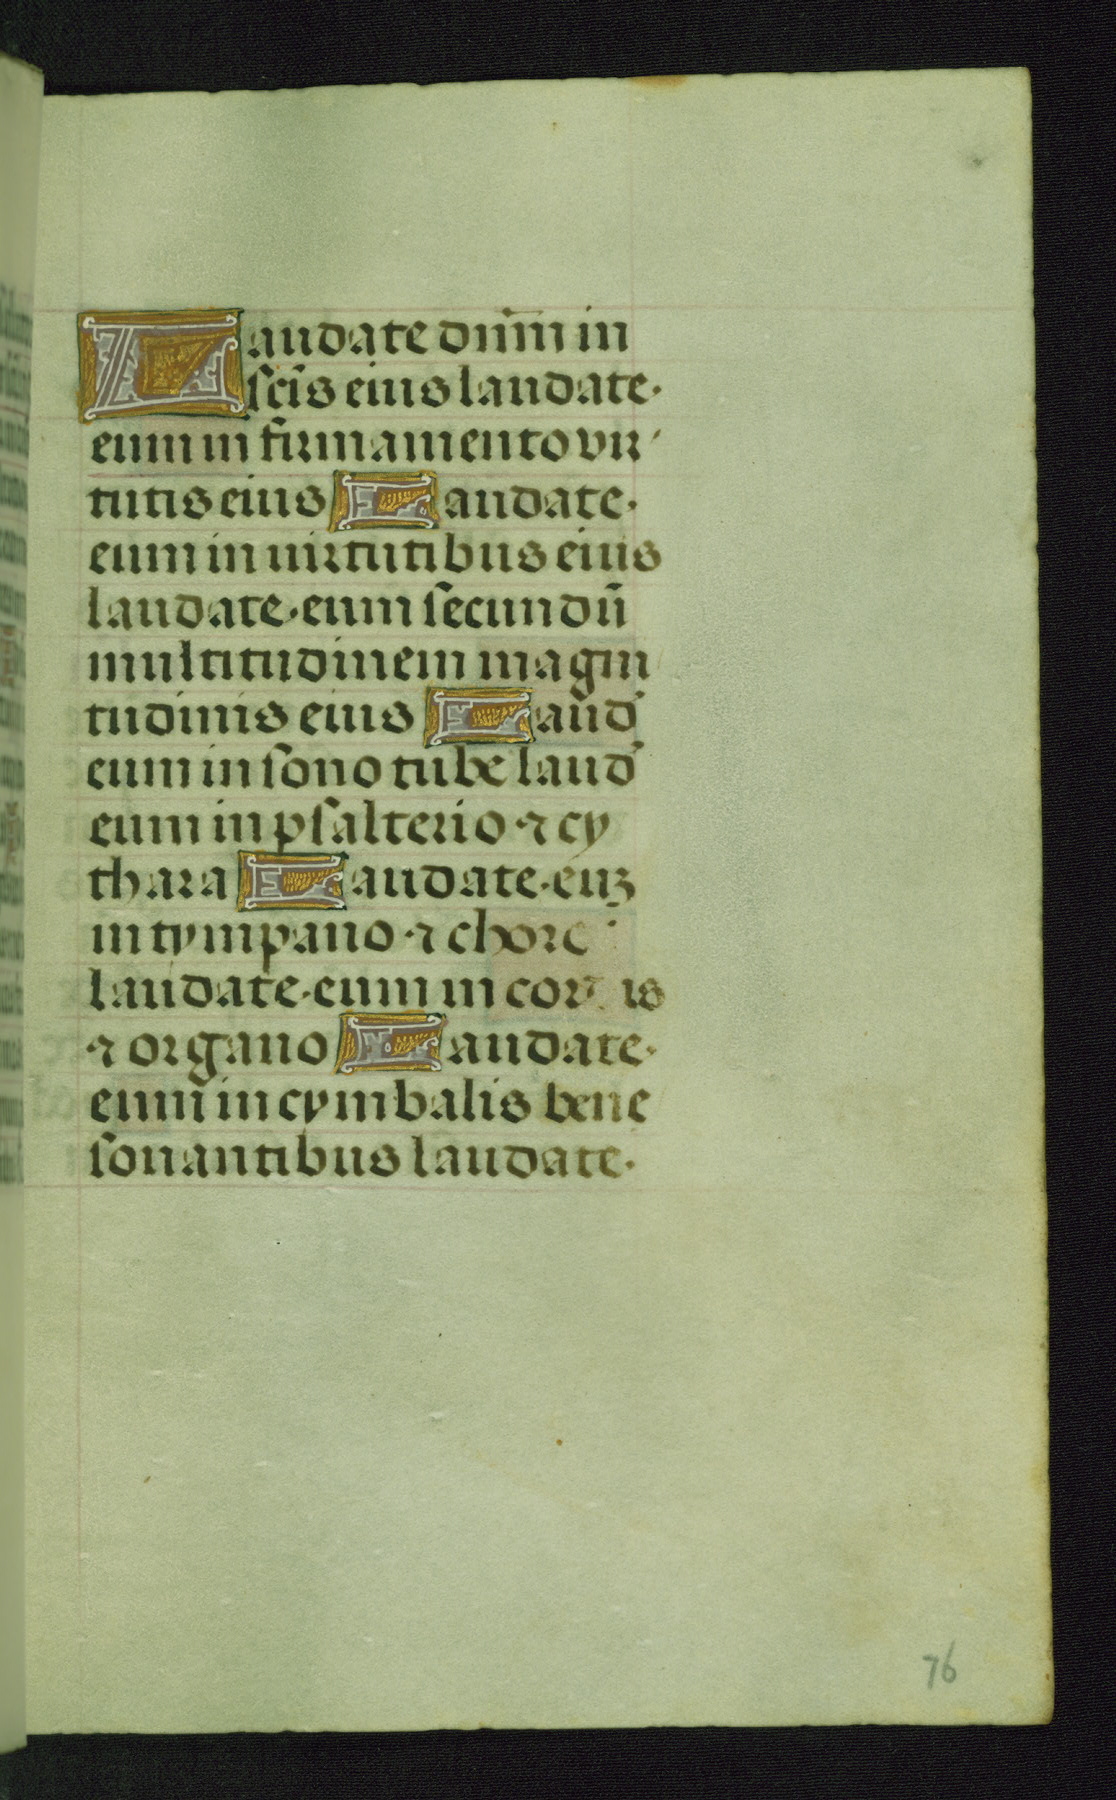 Laudate dn̄m in
sc̄is eius laudate·
eum in firmamento vir
tutis eius Laudate·
eum in uirtutibus eius
laudate·eum secundū
multitudinem magni
tudinis eius Laud
eum in sono tube laud
eum in psalterio·⁊ cy
thara Laudate·euz
in tympano·⁊ choro
laudate·eum in cordis
⁊ organo Laudate·
eum in cymbalis bene
sonantibus laudate·
76